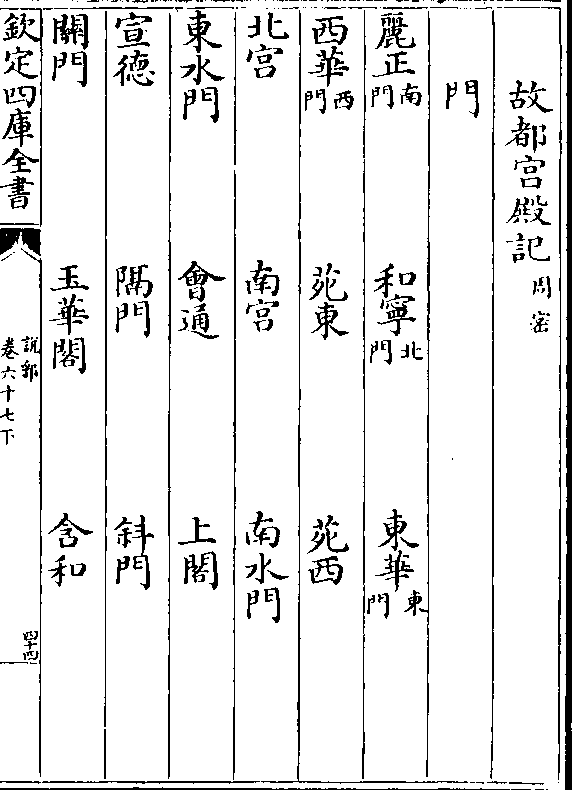 故都宮殿記周密
門
麗正南門 和寧北門 東華東門
西華西門 苑東 苑西
北宮 南宮 南水門
東水門 會通 上閣
宣德 隅門 斜門
關門 玉華閣 含和
欽定四庫全書
說郛
卷六十七下
四十四